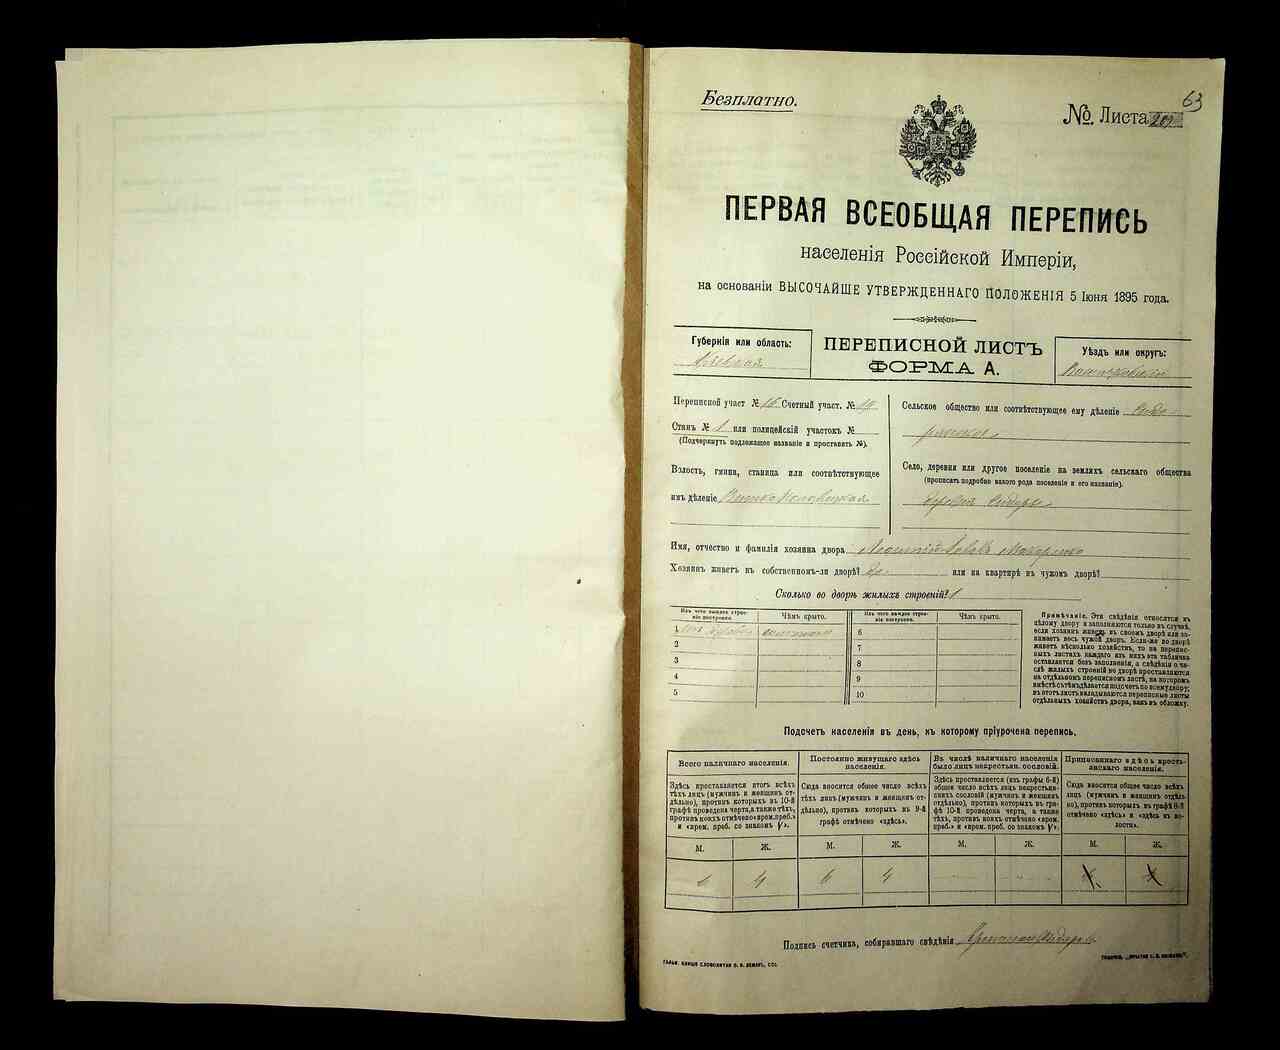 63
Безплатно.
№. Листа
ПЕРВАЯ ВСЕОБЩАЯ ПЕРЕПИСЬ
населенія Россійской Имперіи,
на основаніи ВЫСОЧАЙШЕ УТВЕРЖДЕННАГО ПОЛОЖЕНІЯ 5 Іюня 1895 года.
Губернія или область:
Кіевская
ПЕРЕПИСНОЙ ЛИСТЪ
ФОРМА А.
Уѣздъ или округъ:
Переписной участ № 16 Счетный участ. №
Станъ № 1 или полицейскій участокъ №
(Подчеркнуть подлежащее названіе и проставить №).
Волость, гмина, станица или соотвѣтствующее
имъ дѣленіе
Сельское общество или соотвѣтствующее ему дѣленіе
Село, деревня или другое поселеніе на земляхъ сельскаго общества
(прописать подробно какого рода поселеніе и его названіе).
деревня
Имя, отчество и фамилія хозяина двора
Хозяинъ живетъ въ собственномъ-ли дворѣ? да или на квартирѣ въ чужомъ дворѣ?
Сколько во дворѣ жилыхъ строеній? 1
Изъ чего каждое строеніе построено. Чѣмъ крыто. Изъ чего каждое строеніе построено. Чѣмъ крыто.
1 соломою 6
2 7
3 8
4 9
5 10
Примѣчаніе. Эти свѣдѣнія относятся къ
цѣлому двору и заполняются только въ случаѣ,
если хозяинъ живетъ въ своемъ дворѣ или занимаетъ
весь чужой дворъ. Если-же во дворѣ
живетъ нѣсколько хозяйствъ, то на переписныхъ
листахъ каждаго изъ нихъ эта табличка
оставляется безъ заполненія, а свѣдѣнія о числѣ
жилыхъ строеній во дворѣ проставляются
на отдѣльномъ переписномъ листѣ, на которомъ
вмѣстѣ съ тѣмъ дѣлается подсчетъ по всему двору;
въ этотъ листъ вкладываются переписные листы
отдѣльныхъ хозяйствъ двора, какъ въ обложку.
Подсчетъ населенія въ день, къ которому пріурочена перепись.
Всего наличнаго населенія.
Здѣсь проставляется итогъ всѣхъ
тѣхъ лицъ (мужчинъ и женщинъ отдѣльно),
противъ которыхъ въ 10-й
графѣ проведена черта, а также тѣхъ,
противъ коихъ отмѣчено «врем. преб.»
и «врем. преб. со знакомъ V».
Постоянно живущаго здѣсь
населенія.
Сюда вносится общее число всѣхъ
тѣхъ лицъ (мужчинъ и женщинъ отдѣльно),
противъ которыхъ въ 9-й
графѣ отмѣчено «здѣсь».
Въ числѣ наличнаго населенія
было лицъ некрестьян. сословій.
Здѣсь проставляется (изъ графы 6-й)
общее число всѣхъ лицъ некрестьянскихъ
сословій (мужчинъ и женщинъ
отдѣльно), противъ которыхъ въ графѣ
10-й проведена черта, а также
тѣхъ, противъ коихъ отмѣчено «врем.
преб.» и «врем. преб. со знакомъ V».
Приписаннаго здѣсь крестьянскаго
населенія.
Сюда вносится общее число всѣхъ
лицъ (мужчинъ и женщинъ отдѣльно),
противъ которыхъ въ графѣ 8-й
отмѣчено «здѣсь» и «здѣсь въ волости».
М. Ж. М. Ж. М. Ж. М. Ж.
6 4 6 4
Подпись счетчика, собиравшаго свѣдѣнія